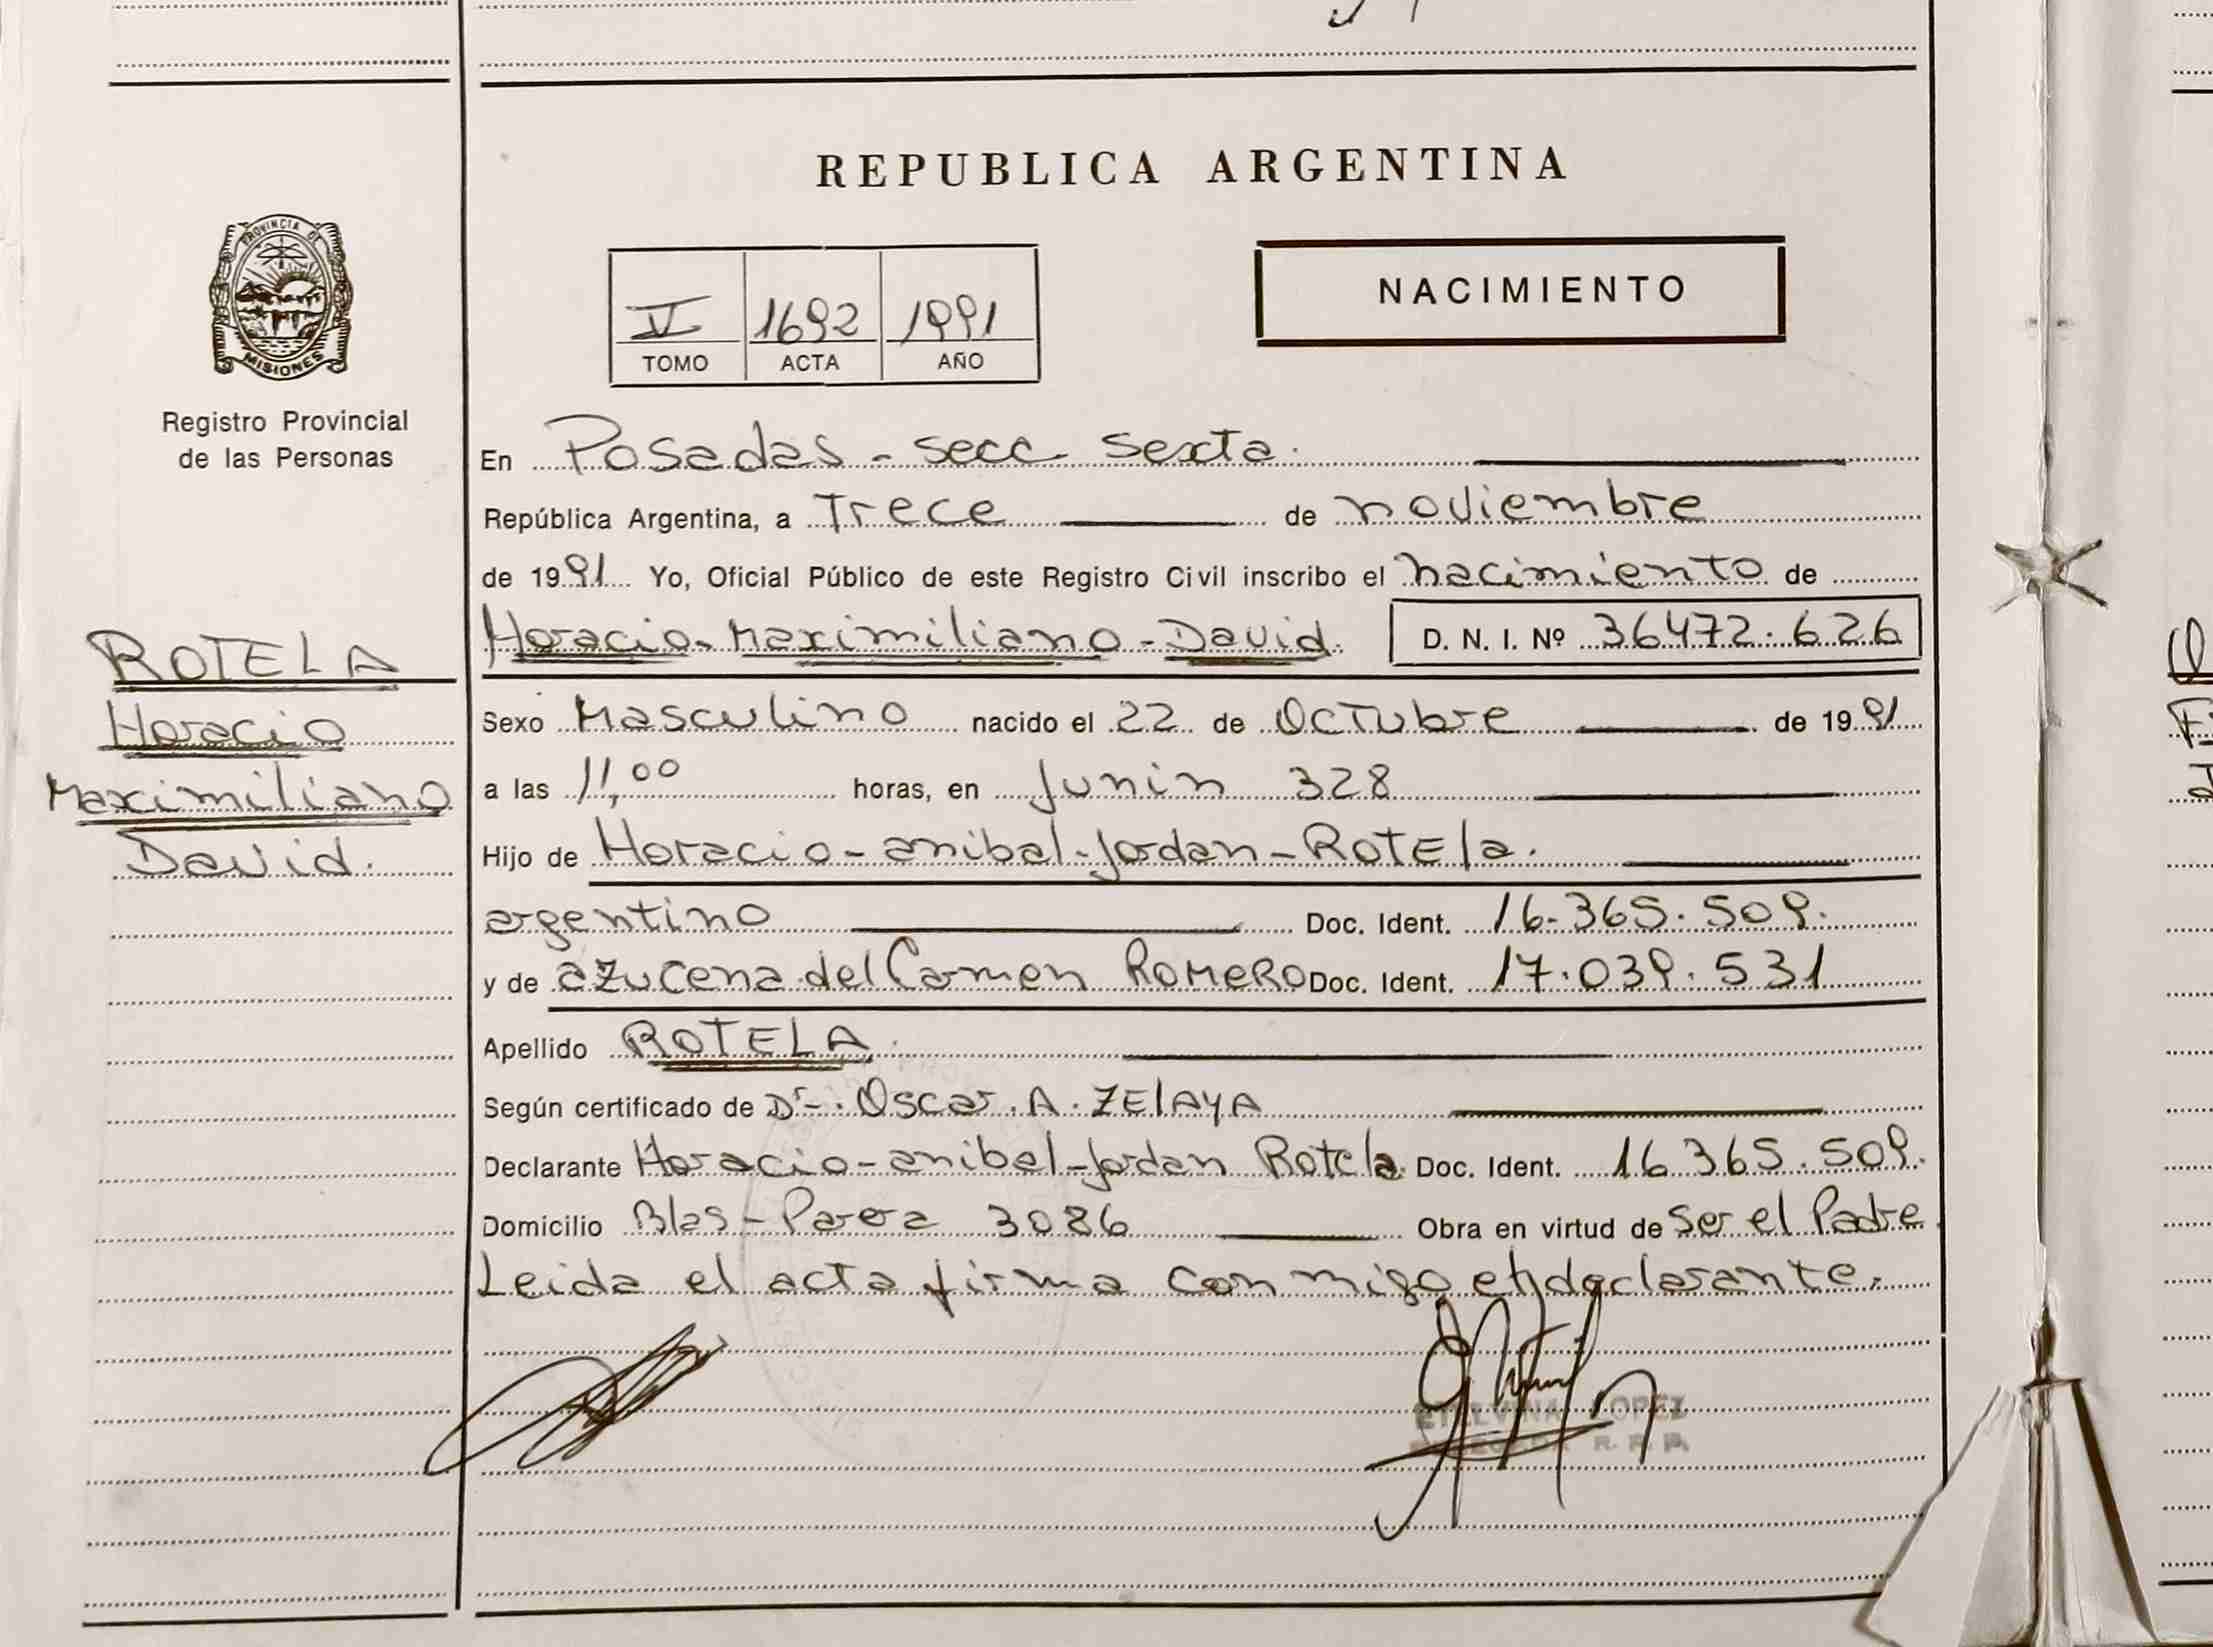 REPUBLICA ARGENTINA
PROVINCIA DE
MISIONES
Registro Provincial
de las Personas
V 1692 1991
TOMO ACTA AÑO
NACIMIENTO
En Posadas - secc sexta.
República Argentina, a Trece de noviembre
de 1991 Yo, Oficial Público de este Registro Civil inscribo el nacimiento de
Horacio - Maximiliano - David. D. N. I. Nº 36472.626
ROTELA
Horacio
Maximiliano
David.
Sexo Masculino nacido el 22 de Octubre de 1991
a las 11,00 horas, en Junin 328
Hijo de Horacio - anibal - Jordan - ROTEla.
argentino Doc. Ident. 16.365.509.
y de azucena del Carmen ROMERO Doc. Ident. 17.039.531
Apellido ROTELA.
Según certificado de Dr. Oscar. A. ZElAYA
Declarante Horacio - anibal - Jordan Rotela. Doc. Ident. 16 365.509.
Domicilio Blas - Parera 3086 Obra en virtud de ser el Padre.
Leida el acta firma conmigo el declarante.
ETELVINA LOPEZ
DELEGADA R. P. P.